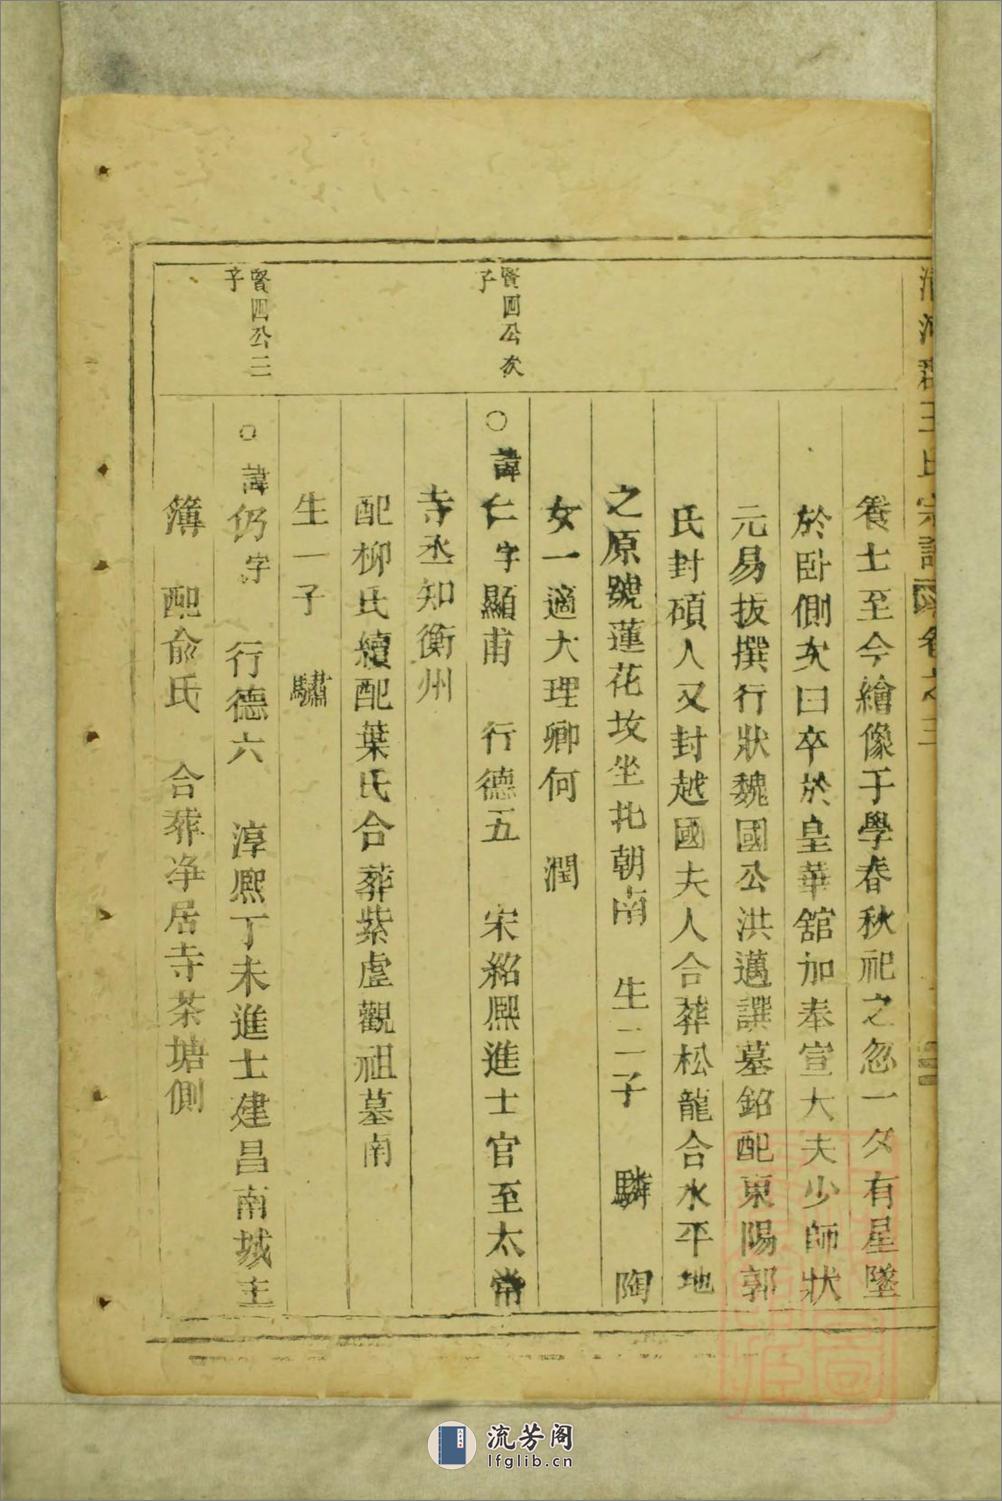 王氏宗譜 卷之三
養士至今繪像于學春秋祀之忽一夕有星墜
於卧側次曰卒於皇華舘加奉宣大夫少師狀
元易抜撰行狀魏國公洪邁譔墓銘配東陽郭
氏封碩人又封越國夫人合葬松龍合水平地
之原號蓮花坟坐北朝南 生二子 驎 陶
女一適大理卿何 潤
賢四公次
子
○諱仁字顯甫 行德五 宋紹熙進士官至太常
寺丞知衡州
配柳氏續配葉氏合葬紫虛觀祖墓南
生一子 驌
賢四公三
子
○諱仍字 行德六 淳熙丁未進士建昌南城主
簿 配俞氏 合葬净居寺茶塘側
流芳阁
lfglib.cn